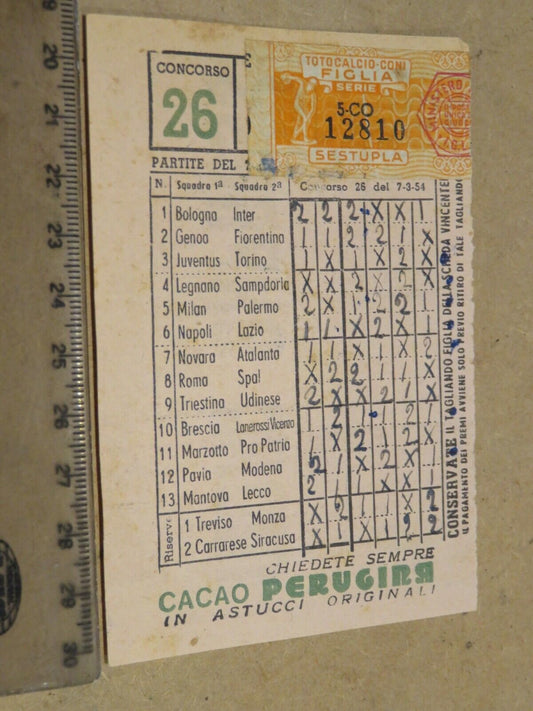 CONCORSO
26
TOTOCALCIO-CONI
FIGLIA
SERIE
5-CO
12810
SESTUPLA
PARTITE DEL
N. Squadra 1ª Squadra 2ª Concorso 26 del 7-3-54
1 Bologna Inter 2 2 2 X X 1
2 Genoa Fiorentina 1 1 2 2 1 X
3 Juventus Torino 1 X 1 X 1 X
4 Legnano Sampdoria X X 2 X 2 X
5 Milan Palermo 2 X 1 2 2 1
6 Napoli Lazio 1 1 X 2 X 1
7 Novara Atalanta 1 1 X 1 X 2
8 Roma Spal X 2 2 1 1 X
9 Triestina Udinese 2 X X X 2 1
10 Brescia Lanerossi Vicenza 1 2 1 2 1 1
11 Marzotto Pro Patria 1 X 2 1 2 X
12 Pavia Modena 2 1 X 2 X 1
13 Mantova Lecco 2 1 1 X X X
Riserve
1 Treviso Monza X 2 1 1 X 2
2 Carrarese Siracusa 1 X X 1 2 2
CONSERVATE IL TAGLIANDO FIGLIA DELLA SCHEDA VINCENTE!
IL PAGAMENTO DEI PREMI AVVIENE SOLO PREVIO RITIRO DI TALE TAGLIANDO
CHIEDETE SEMPRE
CACAO PERUGINA
IN ASTUCCI ORIGINALI
20
21
22
23
24
25
26
27
28
29
30